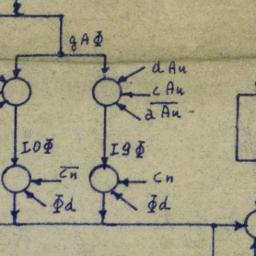 gAΦ
dAu
cAu
aAu
IOΦ
I9Φ
cn
cn
Φd
Φd